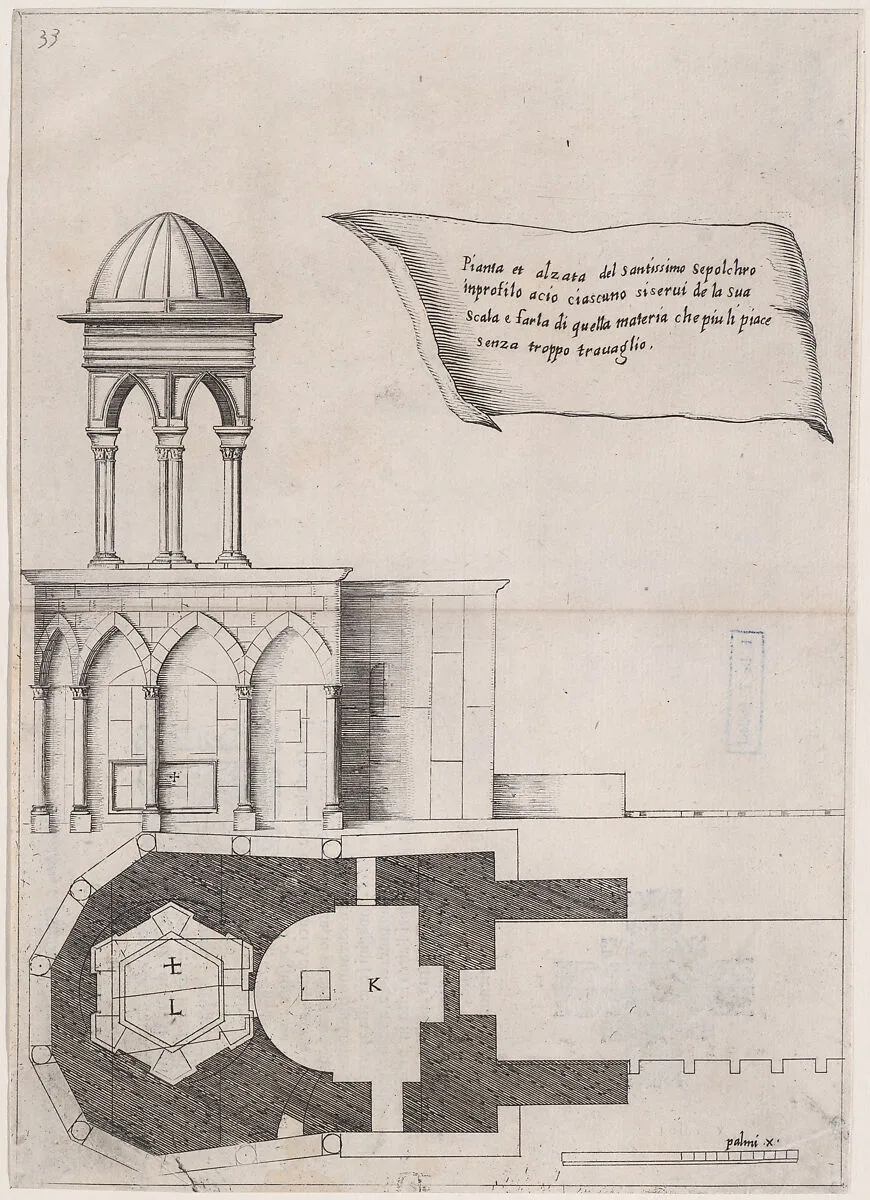 33
Pianta et alzata del santissimo sepolchro
inprofilo acio ciascuno siserui de la sua
scala e farla di quella materia che piu li piace
senza troppo trauaglio.
✝
L
K
palmi ·x·